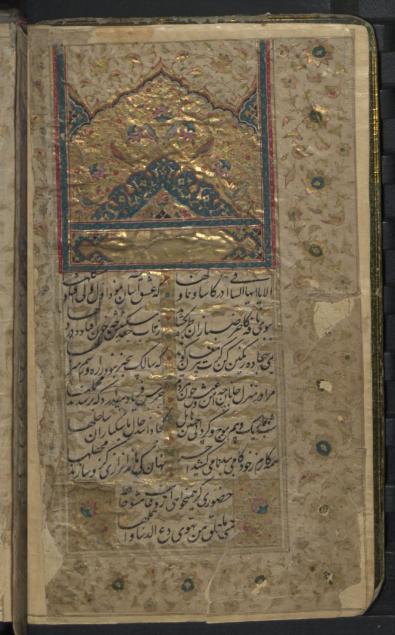 الا یا ایها الساقی ادر کاسا و ناولها که عشق آسان نمود اول ولی افتاد مشکلها
ببوی نافه کاخر صبا زان طره بگشاید ز تاب جعد مشکینش چه خون افتاد در دلها
بمی سجاده رنگین کن گرت پیر مغان گوید که سالک بیخبر نبود ز راه و رسم منزلها
مرا در منزل جانان چه امن عیش چون هر دم جرس فریاد میدارد که بربندید محملها
شب تاریک و بیم موج و گردابی چنین هایل کجا دانند حال ما سبکباران ساحلها
همه کارم ز خود کامی ببدنامی کشید آخر نهان کی ماند آن رازی کزو سازند محفلها
حضوری گر همی خواهی ازو غایب مشو حافظ
متی ما تلق من تهوی دع الدنیا و اهملها